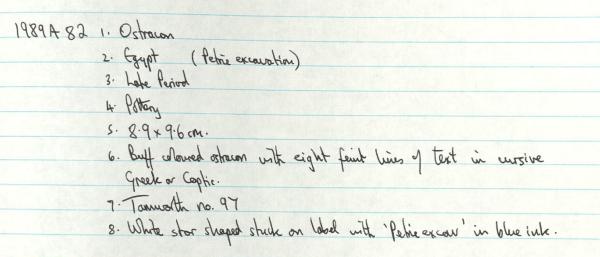 1989A82 1. Ostracon
2. Egypt (Petrie excavation)
3. Late Period
4. Pottery
5. 8.9 x 9.6 cm.
6. Buff coloured ostracon with eight feint lines of text in cursive
Greek or Coptic.
7. Tamworth no. 97
8. White star shaped stuck on label with 'Petrie excav' in blue ink.